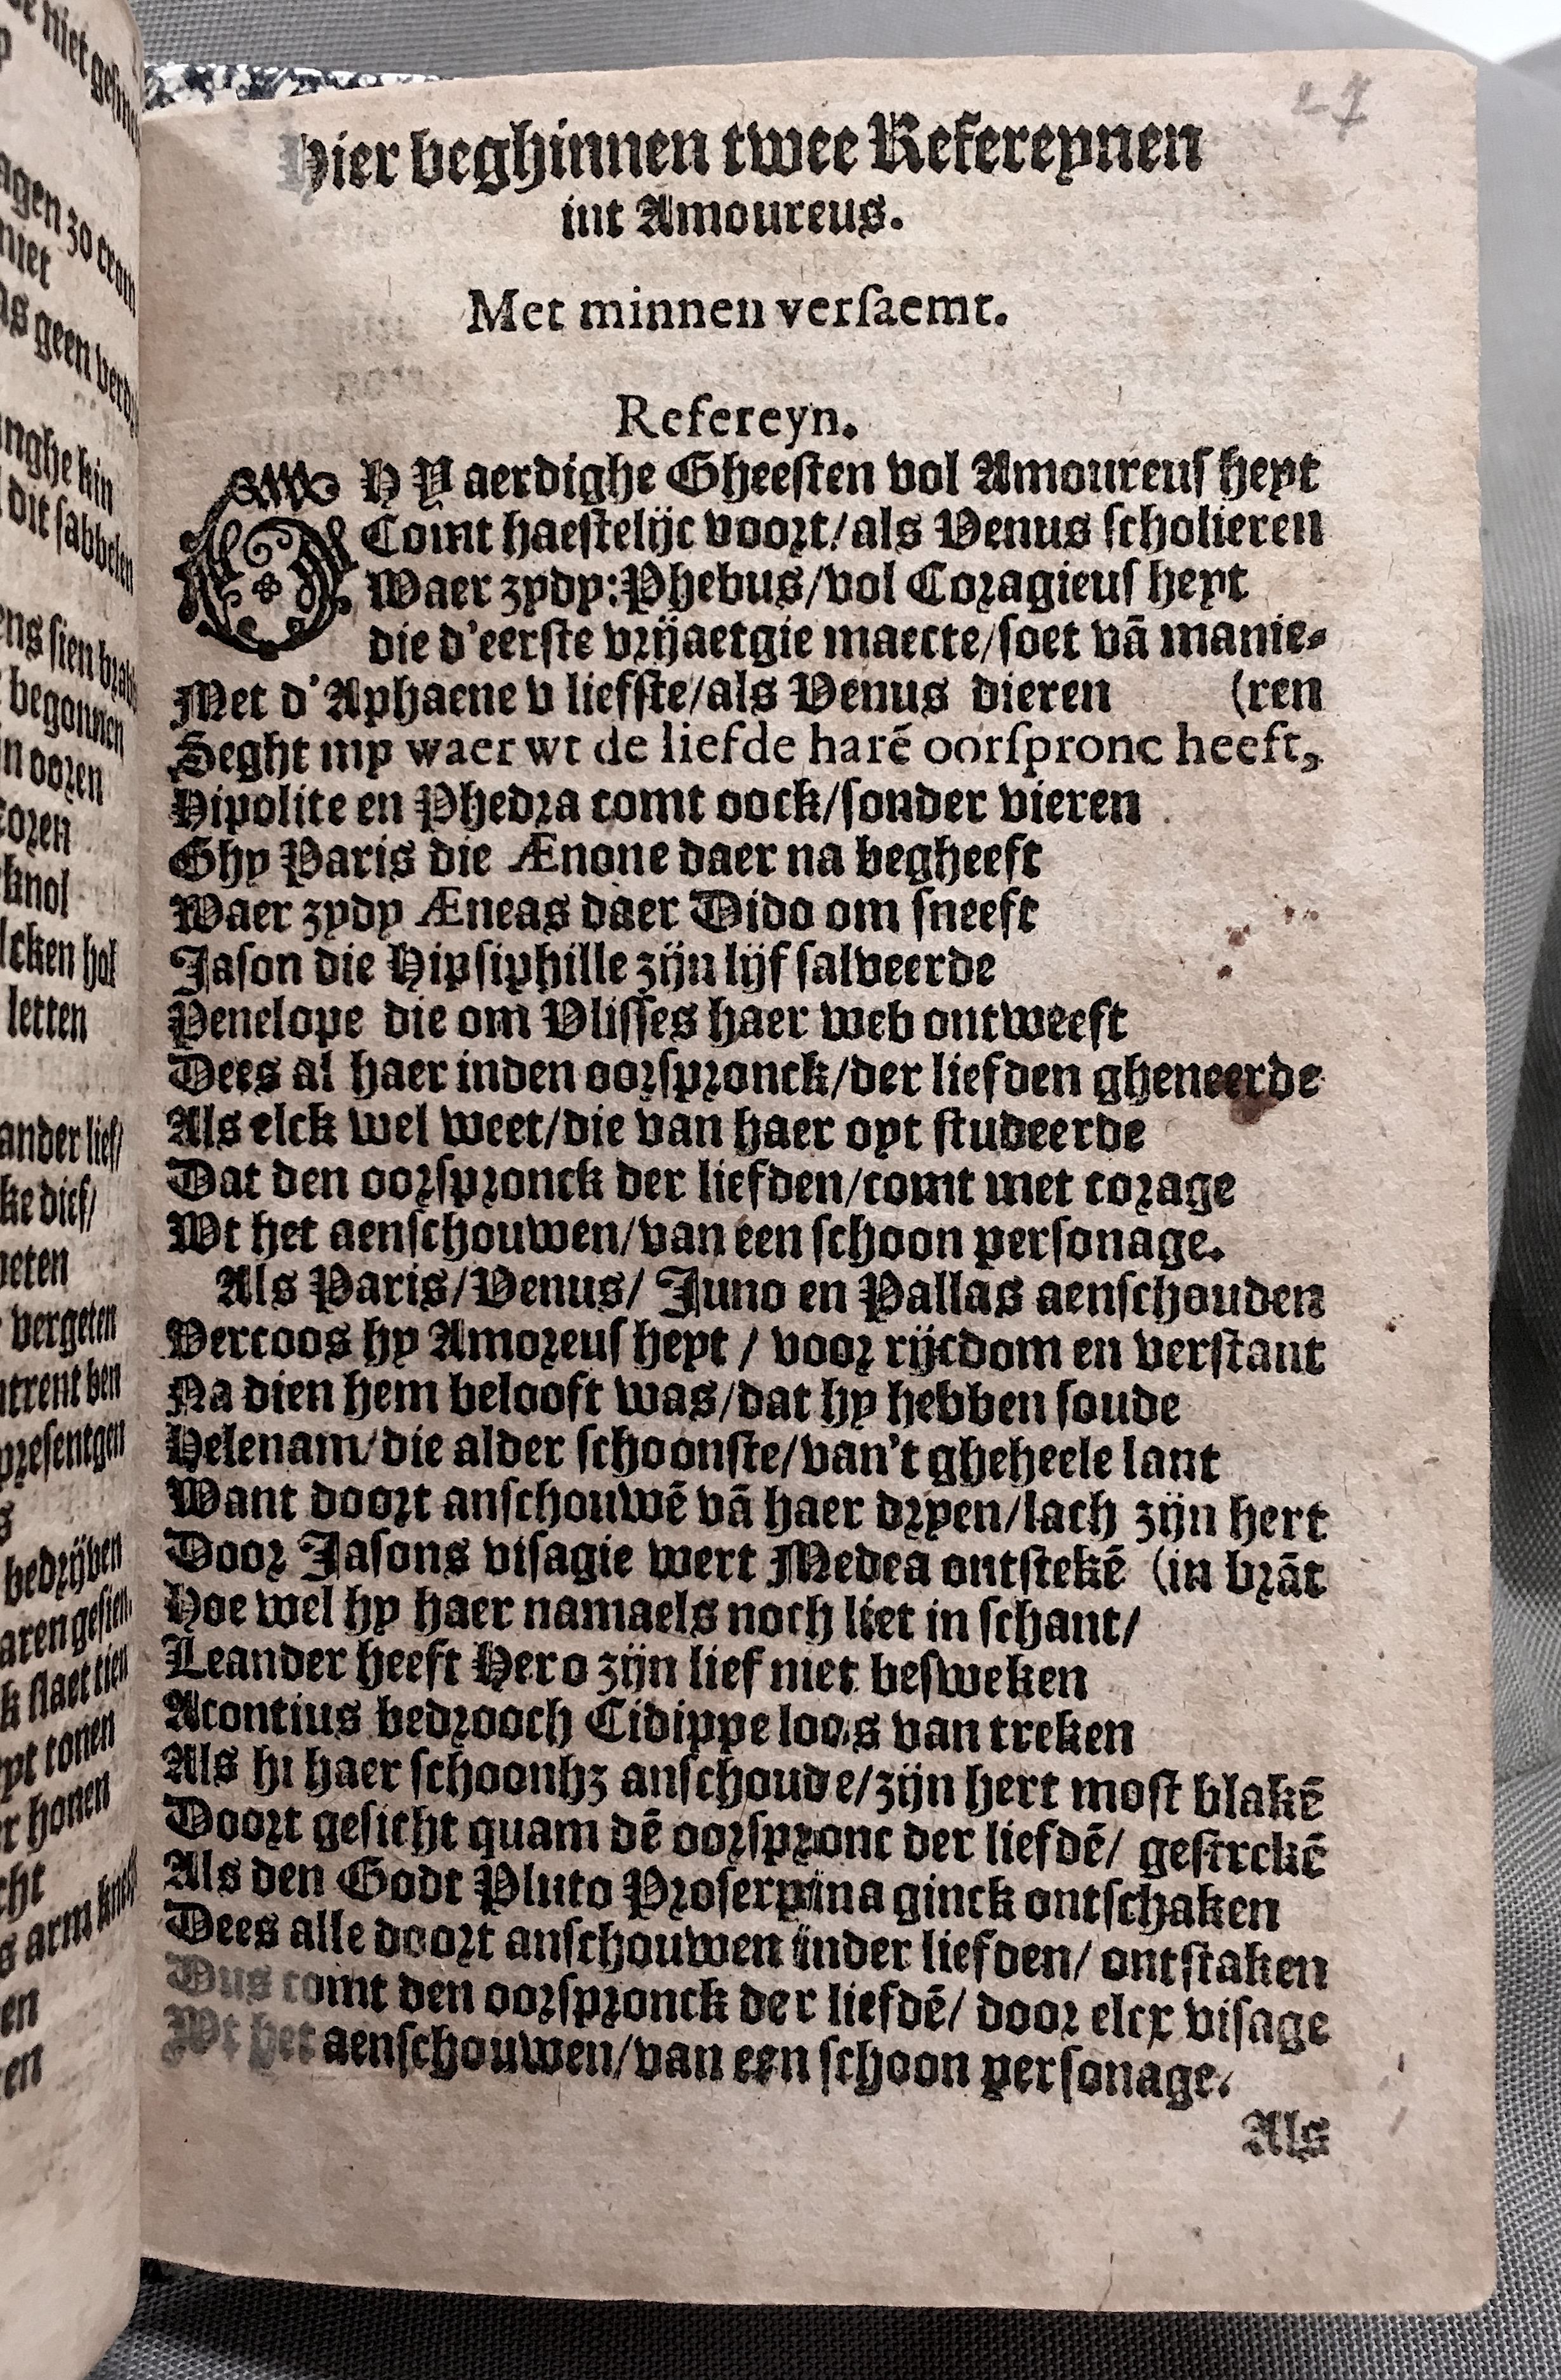 27
Hier beghinnen twee Refereynen
int Amoureus.
Met minnen verſaemt.
Refereyn.
GHY aerdighe Gheeſten vol Amoureuſheyt
Comt haeſtelijc voort/als Venus ſcholieren
Waer zydy:Phebus/vol Coragieuſheyt
die d'eerſte vrijaetgie maecte/ſoet vā manie-
Met d'Aphaene v liefſte/als Venus dieren (ren
Seght my waer wt de liefde harē oorſpronc heeft,
Hipolite en Phedra comt oock/ſonder vieren
Ghy Paris die Ænone daer na begheeft
Waer zydy Æneas daer Dido om ſneeft
Jaſon die Hipſiphille zijn lijf ſalveerde
Penelope die om Vliſſes haer web ontweeft
Dees al haer inden oorſpronck/der liefden gheneerde
Als elck wel weet/die van haer oyt ſtudeerde
Dat den oorſpronck der liefden/comt met corage
Wt het aenſchouwen/van een ſchoon perſonage.
Als Paris/Venus/ Juno en Pallas aenſchouden
Vercoos hy Amoreuſheyt / voor rijcdom en verſtant
Na dien hem belooft was/dat hy hebben ſoude
Helenam/die alder ſchoonſte/van't gheheele lant
Want doort anſchouwē vā haer dryen/lach zijn hert
Door Jaſons viſagie wert Medea ontſtekē (in brāt
Hoe wel hy haer namaels noch liet in ſchant/
Leander heeft Hero zijn lief niet beſweken
Acontius bedrooch Cidippe loos van treken
Als hi haer ſchoonhz anſchoude/zijn hert moſt blakē
Doort geſicht quam dē oorſpronc der liefdē/ geſtrekē
Als den Godt Pluto Proſerpina ginck ontſchaken
Dees alle doort anſchouwen inder liefden/ ontſtaken
Dus comt den oorſpronck der liefdē/ door elcx viſage
Wt het aenſchouwen/van een ſchoon perſonage.
Als